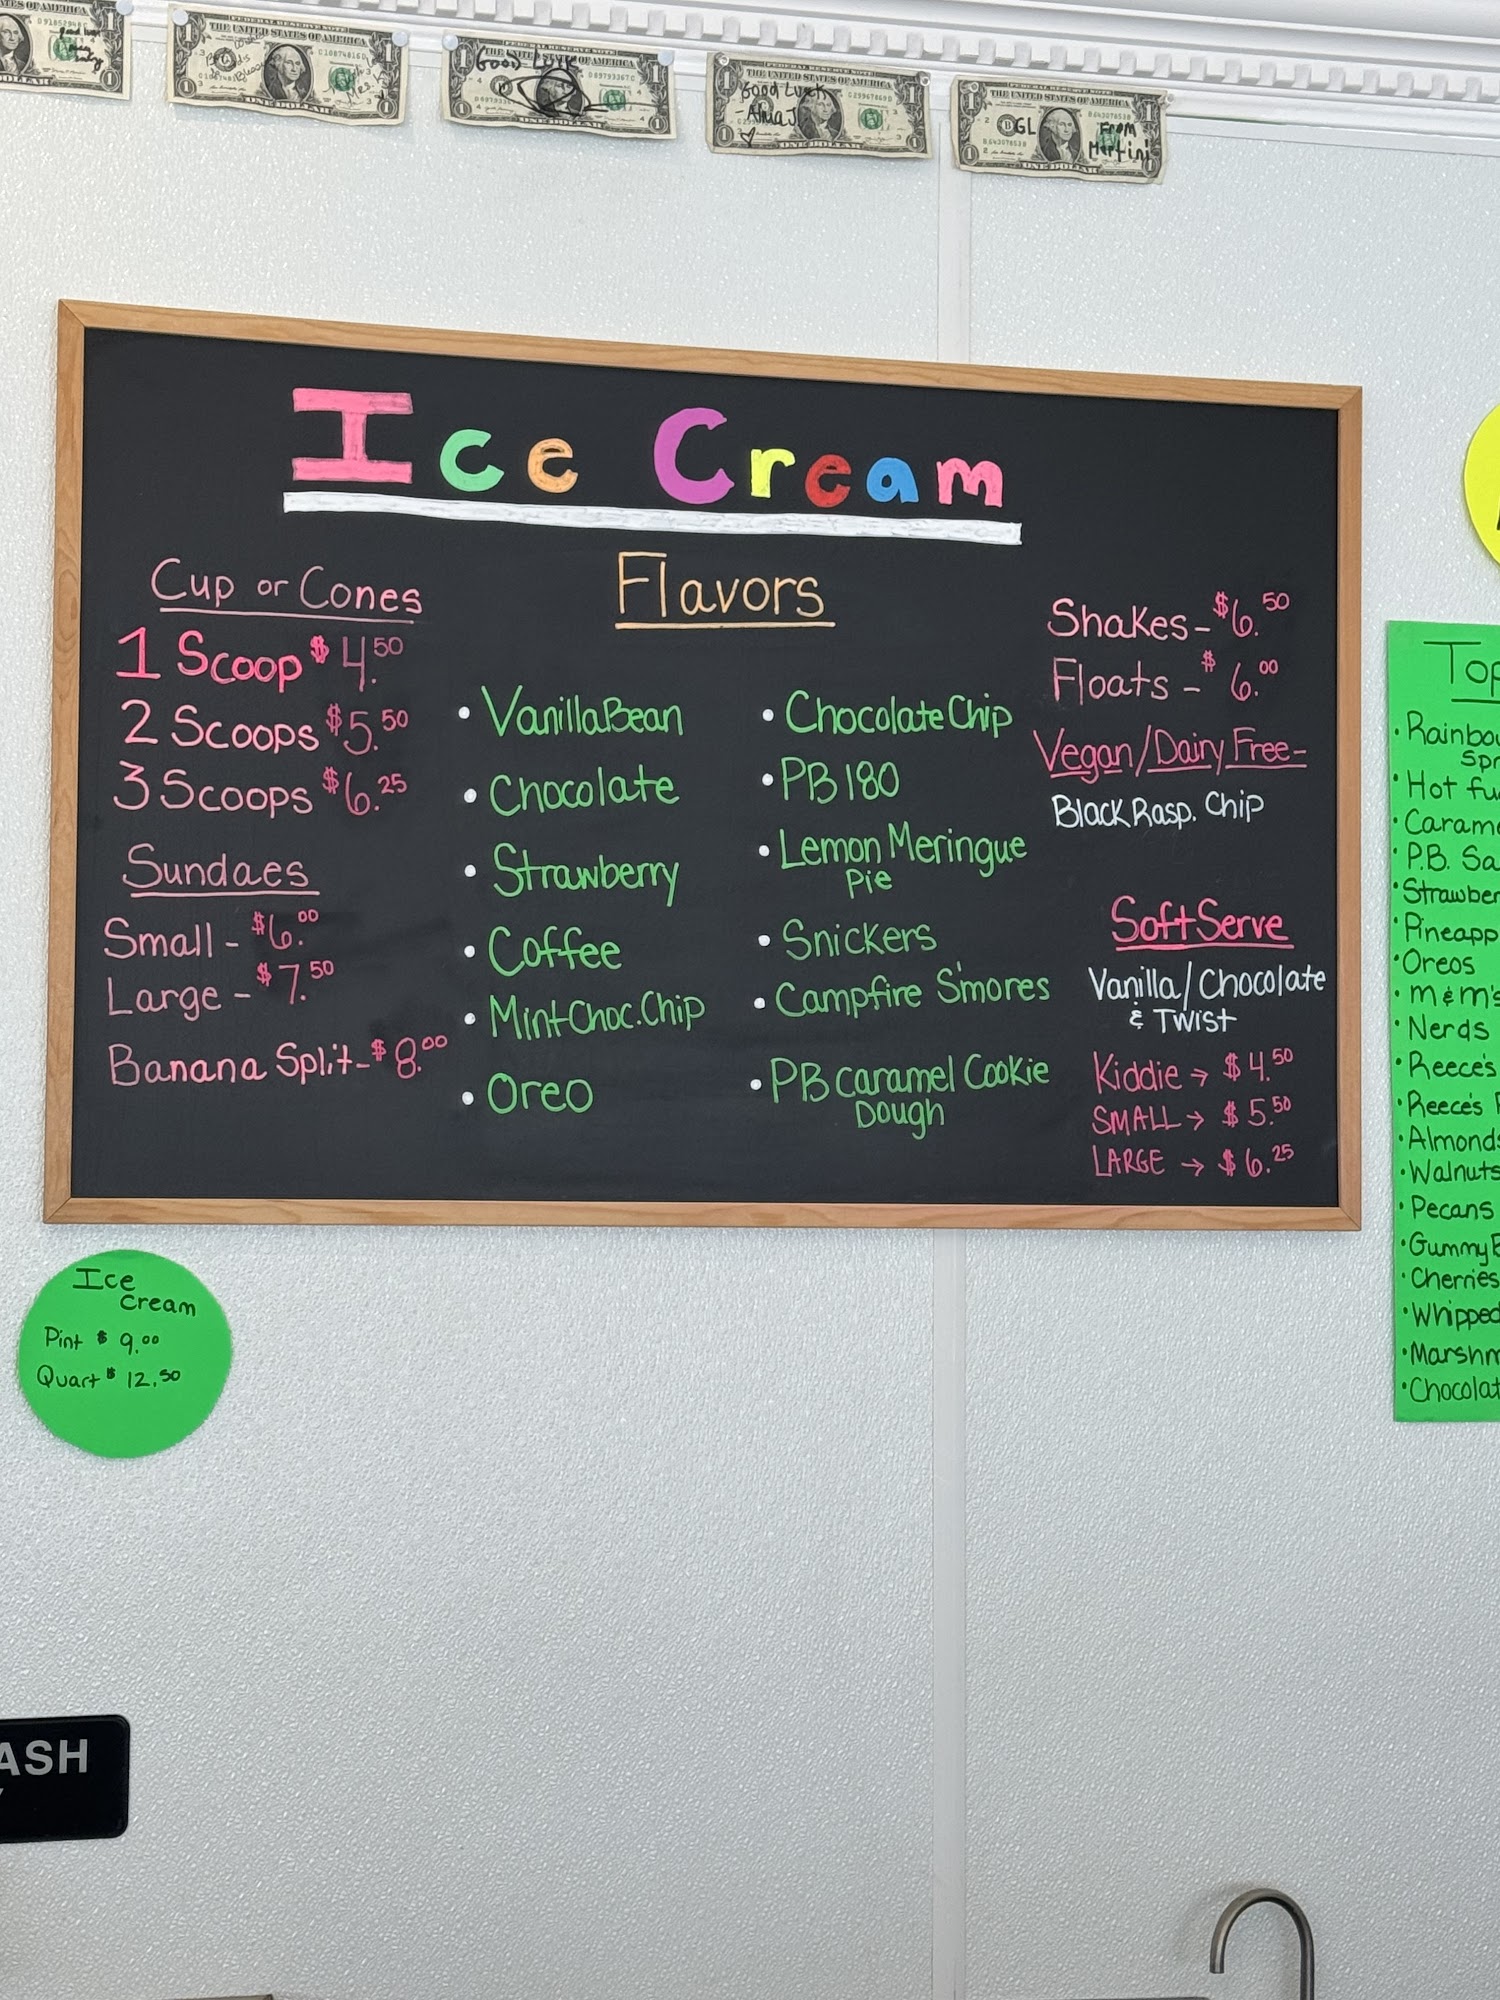 THE UNITED STATES OF AMERICA
ONE DOLLAR
FEDERAL RESERVE NOTE
THE UNITED STATES OF AMERICA
Good Luck
ONE DOLLAR
THE UNITED STATES OF AMERICA
Good Luck
- Alua J
ONE DOLLAR
THE UNITED STATES OF AMERICA
GL
From
Martini
ONE DOLLAR
Ice Cream
Cup or Cones
1 Scoop $4.50
2 Scoops $5.50
3 Scoops $6.25
Sundaes
Small - $6.00
Large - $7.50
Banana Split - $8.00
Flavors
• Vanilla Bean
• Chocolate
• Strawberry
• Coffee
• Mint Choc. Chip
• Oreo
• Chocolate Chip
• PB 180
• Lemon Meringue
Pie
• Snickers
• Campfire S'mores
• PB caramel Cookie
Dough
Shakes - $6.50
Floats - $6.00
Vegan/Dairy Free -
Black Rasp. Chip
Soft Serve
Vanilla/Chocolate
& Twist
Kiddie → $4.50
SMALL → $5.50
LARGE → $6.25
Top
• Rainbo
Spr
• Hot fu
• Carame
• P.B. Sa
• Strawber
• Pineapp
• Oreos
• m & m's
• Nerds
• Reece's
• Reece's
• Almonds
• Walnuts
• Pecans
• Gummy B
• Cherries
• Whipped
• Marshm
• Chocolat
Ice
Cream
Pint $ 9.00
Quart $ 12.50
ASH